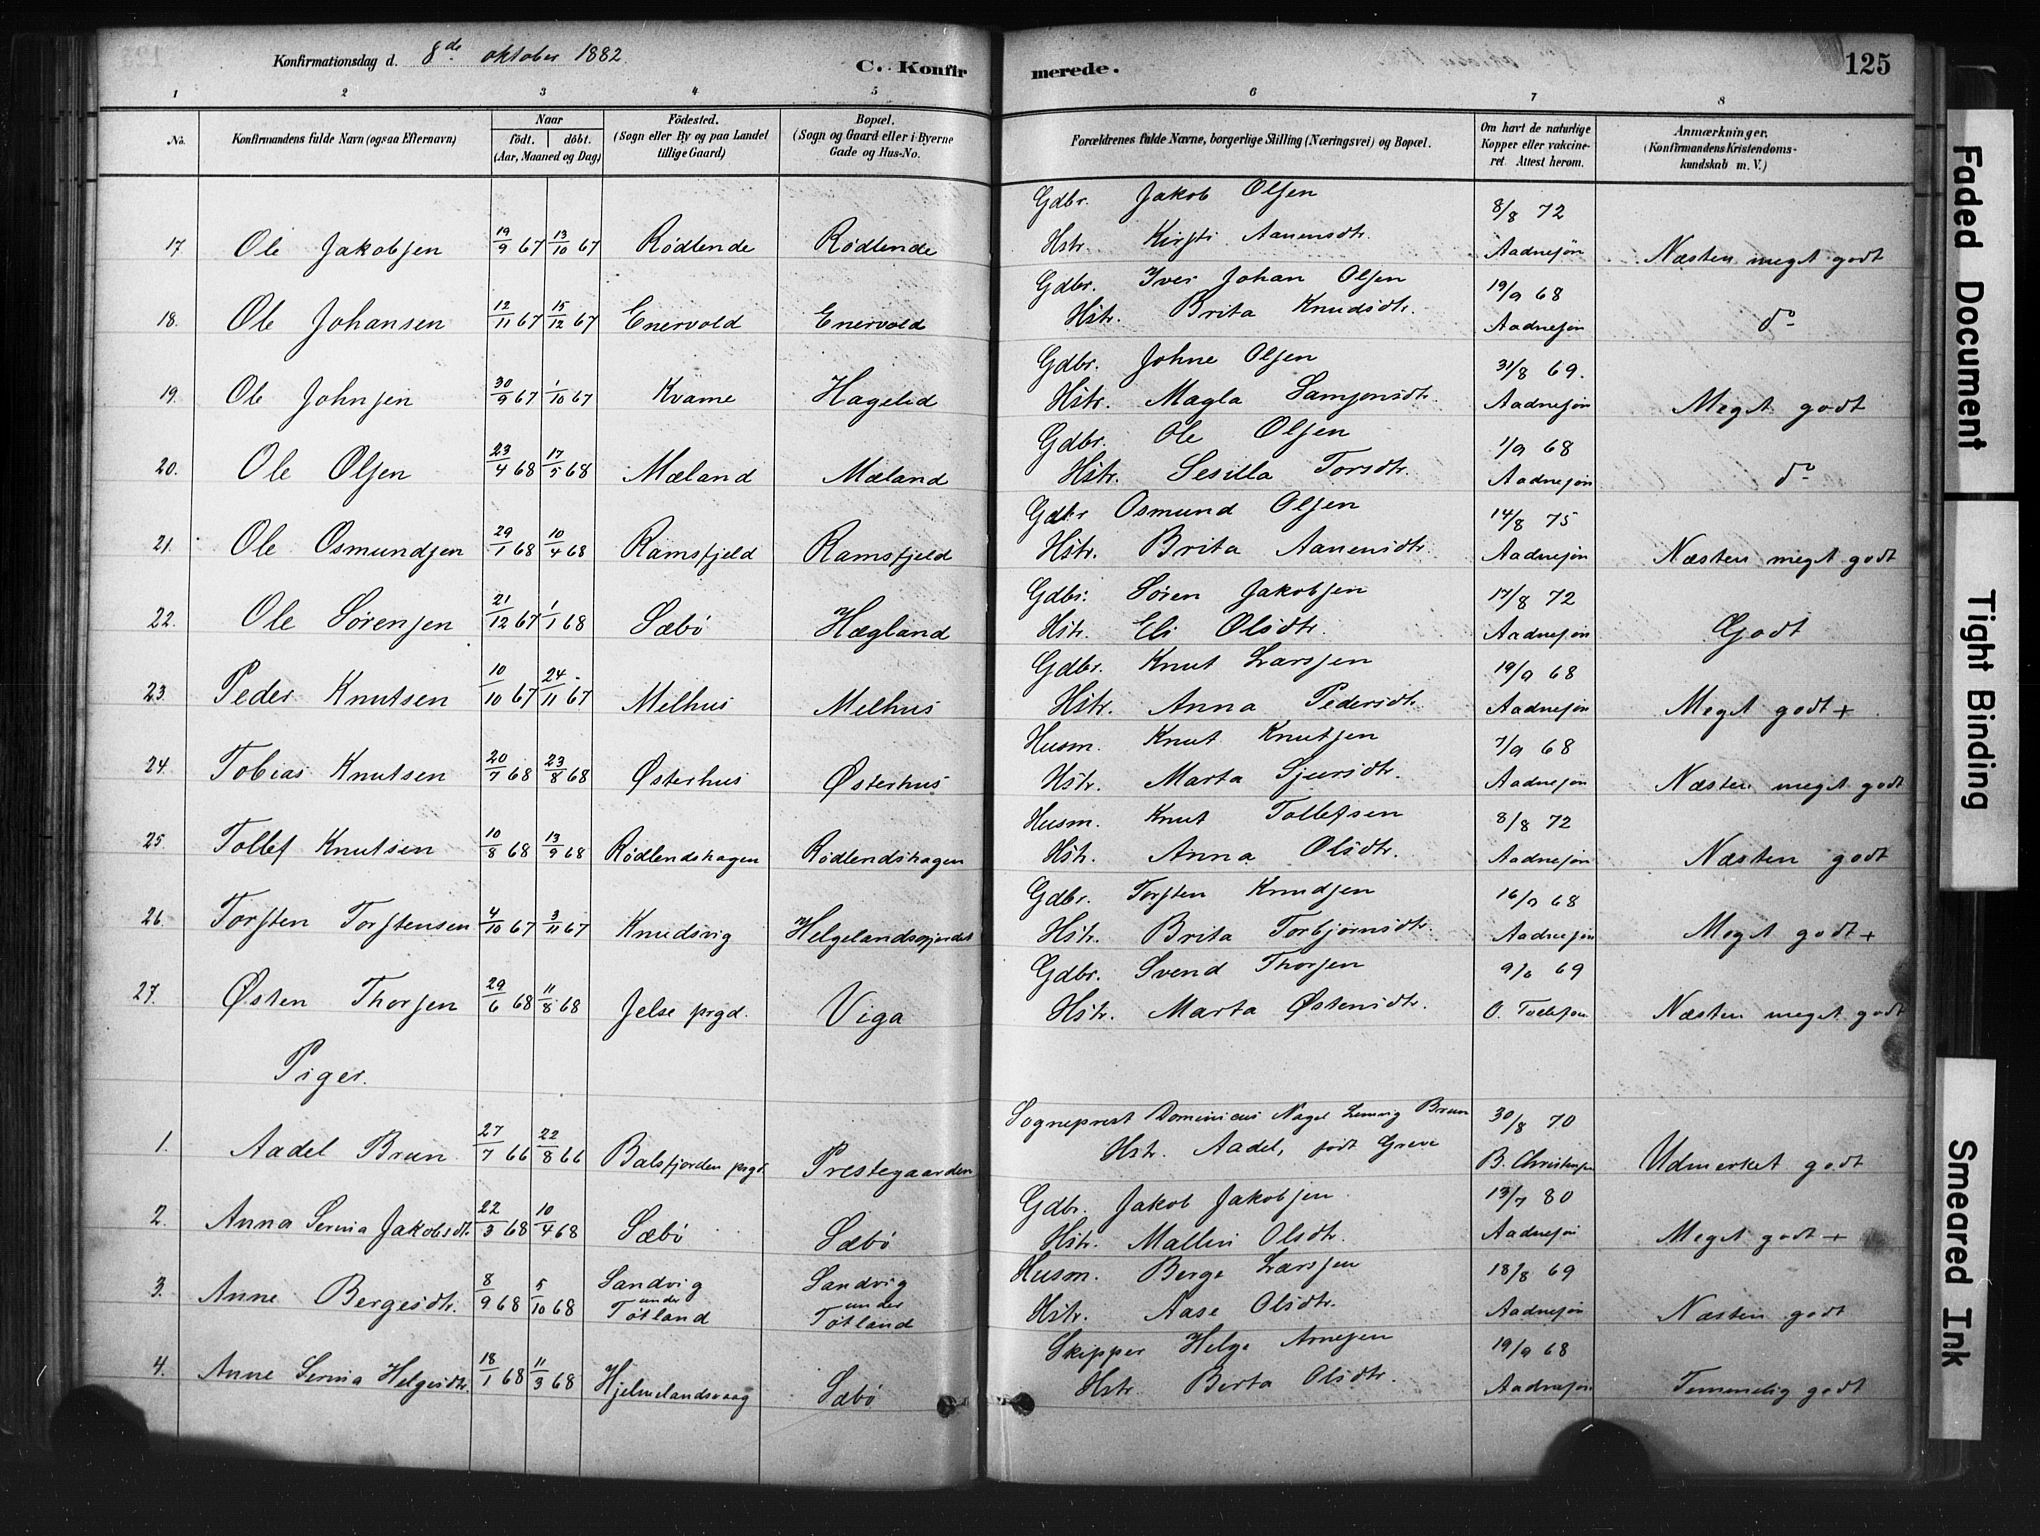 Konfirmationsdag d. 8de oktober 1882
C. Konfirmerede.
125
1 2 3 4 5 6 7 8
No.
Konfirmandens fulde Navn (ogsaa Efternavn)
Naar
født. døbt.
(Aar, Maaned og Dag)
Fødested.
(Sogn eller By og paa Landet
tillige Gaard)
Bopæl.
(Sogn og Gaard eller i Byerne
Gade og Hus-No.
Forældrenes fulde Navne, borgerlige Stilling (Næringsvei) og Bopæl.
Om havt de naturlige
Kopper eller vakcine-
ret. Attest herom.
Anmærkninger.
(Konfirmandens Kristendoms-
kundskab m. V.)
Gdbr. Jakob Olsen 8/8 72
17. Ole Jakobsen 19/9 67 13/10 67 Rødlende Rødlende Hstr. Kirsti Aanensdtr. Aadnesøn Næsten meget godt
Gdbr. Iver Johan Olsen 19/9 68
18. Ole Johansen 12/11 67 15/12 67 Enervold Enervold Hstr. Brita Knudsdtr. Aadnesøn do
Gdbr. Johne Olsen 31/8 69.
19. Ole Johnsen 30/9 67 1/10 67 Kvame Hagelid Hstr. Magla Samsonsdtr. Aadnesøn Meget godt
Gdbr. Ole Olsen 1/9 68
20. Ole Olsen 23/4 68 17/5 68 Mæland Mæland Hstr. Sesilla Torsdtr. Aadnesøn do
Gdbr Osmund Olsen 14/8 75
21. Ole Osmundsen 29/1 68 10/4 68 Ramsfjeld Ramsfjeld Hstr. Brita Aanensdtr. Aadnesøn Næsten meget godt
Gdbr. Søren Jakobsen 17/8 72
22. Ole Sørensen 21/12 67 1/1 68 Sæbø Hægland Hstr. Eli Olsdtr. Aadnesøn Godt
Gdbr. Knut Larssen 19/9 68
23. Peder Knutsen 10/10 67 24/11 67 Melhus Melhus Hstr. Anna Pedersdtr. Aadnesøn Meget godt +
Husm. Knut Knutsen 7/9 68
24. Tobias Knutsen 20/7 68 23/8 68 Østerhus Østerhus Hstr. Marta Sjursdtr. Aadnesøn Næsten meget godt
Husm. Knut Tollefsen 8/8 72
25 Tollef Knutsen 10/8 68 13/9 68 Rødlendshagen Rødlendshagen Hstr. Anna Olsdtr. Aadnesøn Næsten godt
Gdbr. Torsten Knudsen 16/9 68
26. Torsten Torstensen 4/10 67 3/11 67 Knudsvig Hstr. Brita Torbjørnsdtr. Aadnesøn Meget godt +
Gdbr. Svend Thorsen 9/6 69
27. Østen Thorsen 29/6 68 11/8 68 Jelse prgd. Viga Hstr. Marta Østensdtr. O. Tollefsen Næsten meget godt
Piger.
Sogneprest Dominicus Nagel Lemvig Brun 30/8 70
1. Aadel Brun 27/7 66 22/8 66 Balsfjorden prgd. Prestegaarden Hstr. Aadel, født Greve B. Christensen Udmerket godt
Gdbr. Jakob Jakobsen 13/7 80
2. Anna Serina Jakobsdtr. 22/3 68 10/4 68 Sæbø Sæbø Hstr. Mallin Olsdtr. Aadnesøn Meget godt +
Husm. Berge Larssen 18/8 69
3. Anne Bergesdtr. 8/9 68 5/10 68 Sandvig under Tøtland Sandvig under Tøtland Hstr. Aase Olsdtr. Aadnesøn Næsten godt
Skipper Helge Arnesen 19/9 68
4. Anne Serina Helgesdtr. 18/1 68 11/3 68 Hjelmelandsvaag Sæbø Hstr. Berta Olsdtr. Aadnesøn Temmelig godt
Faded Document
Tight Binding
Smeared Ink